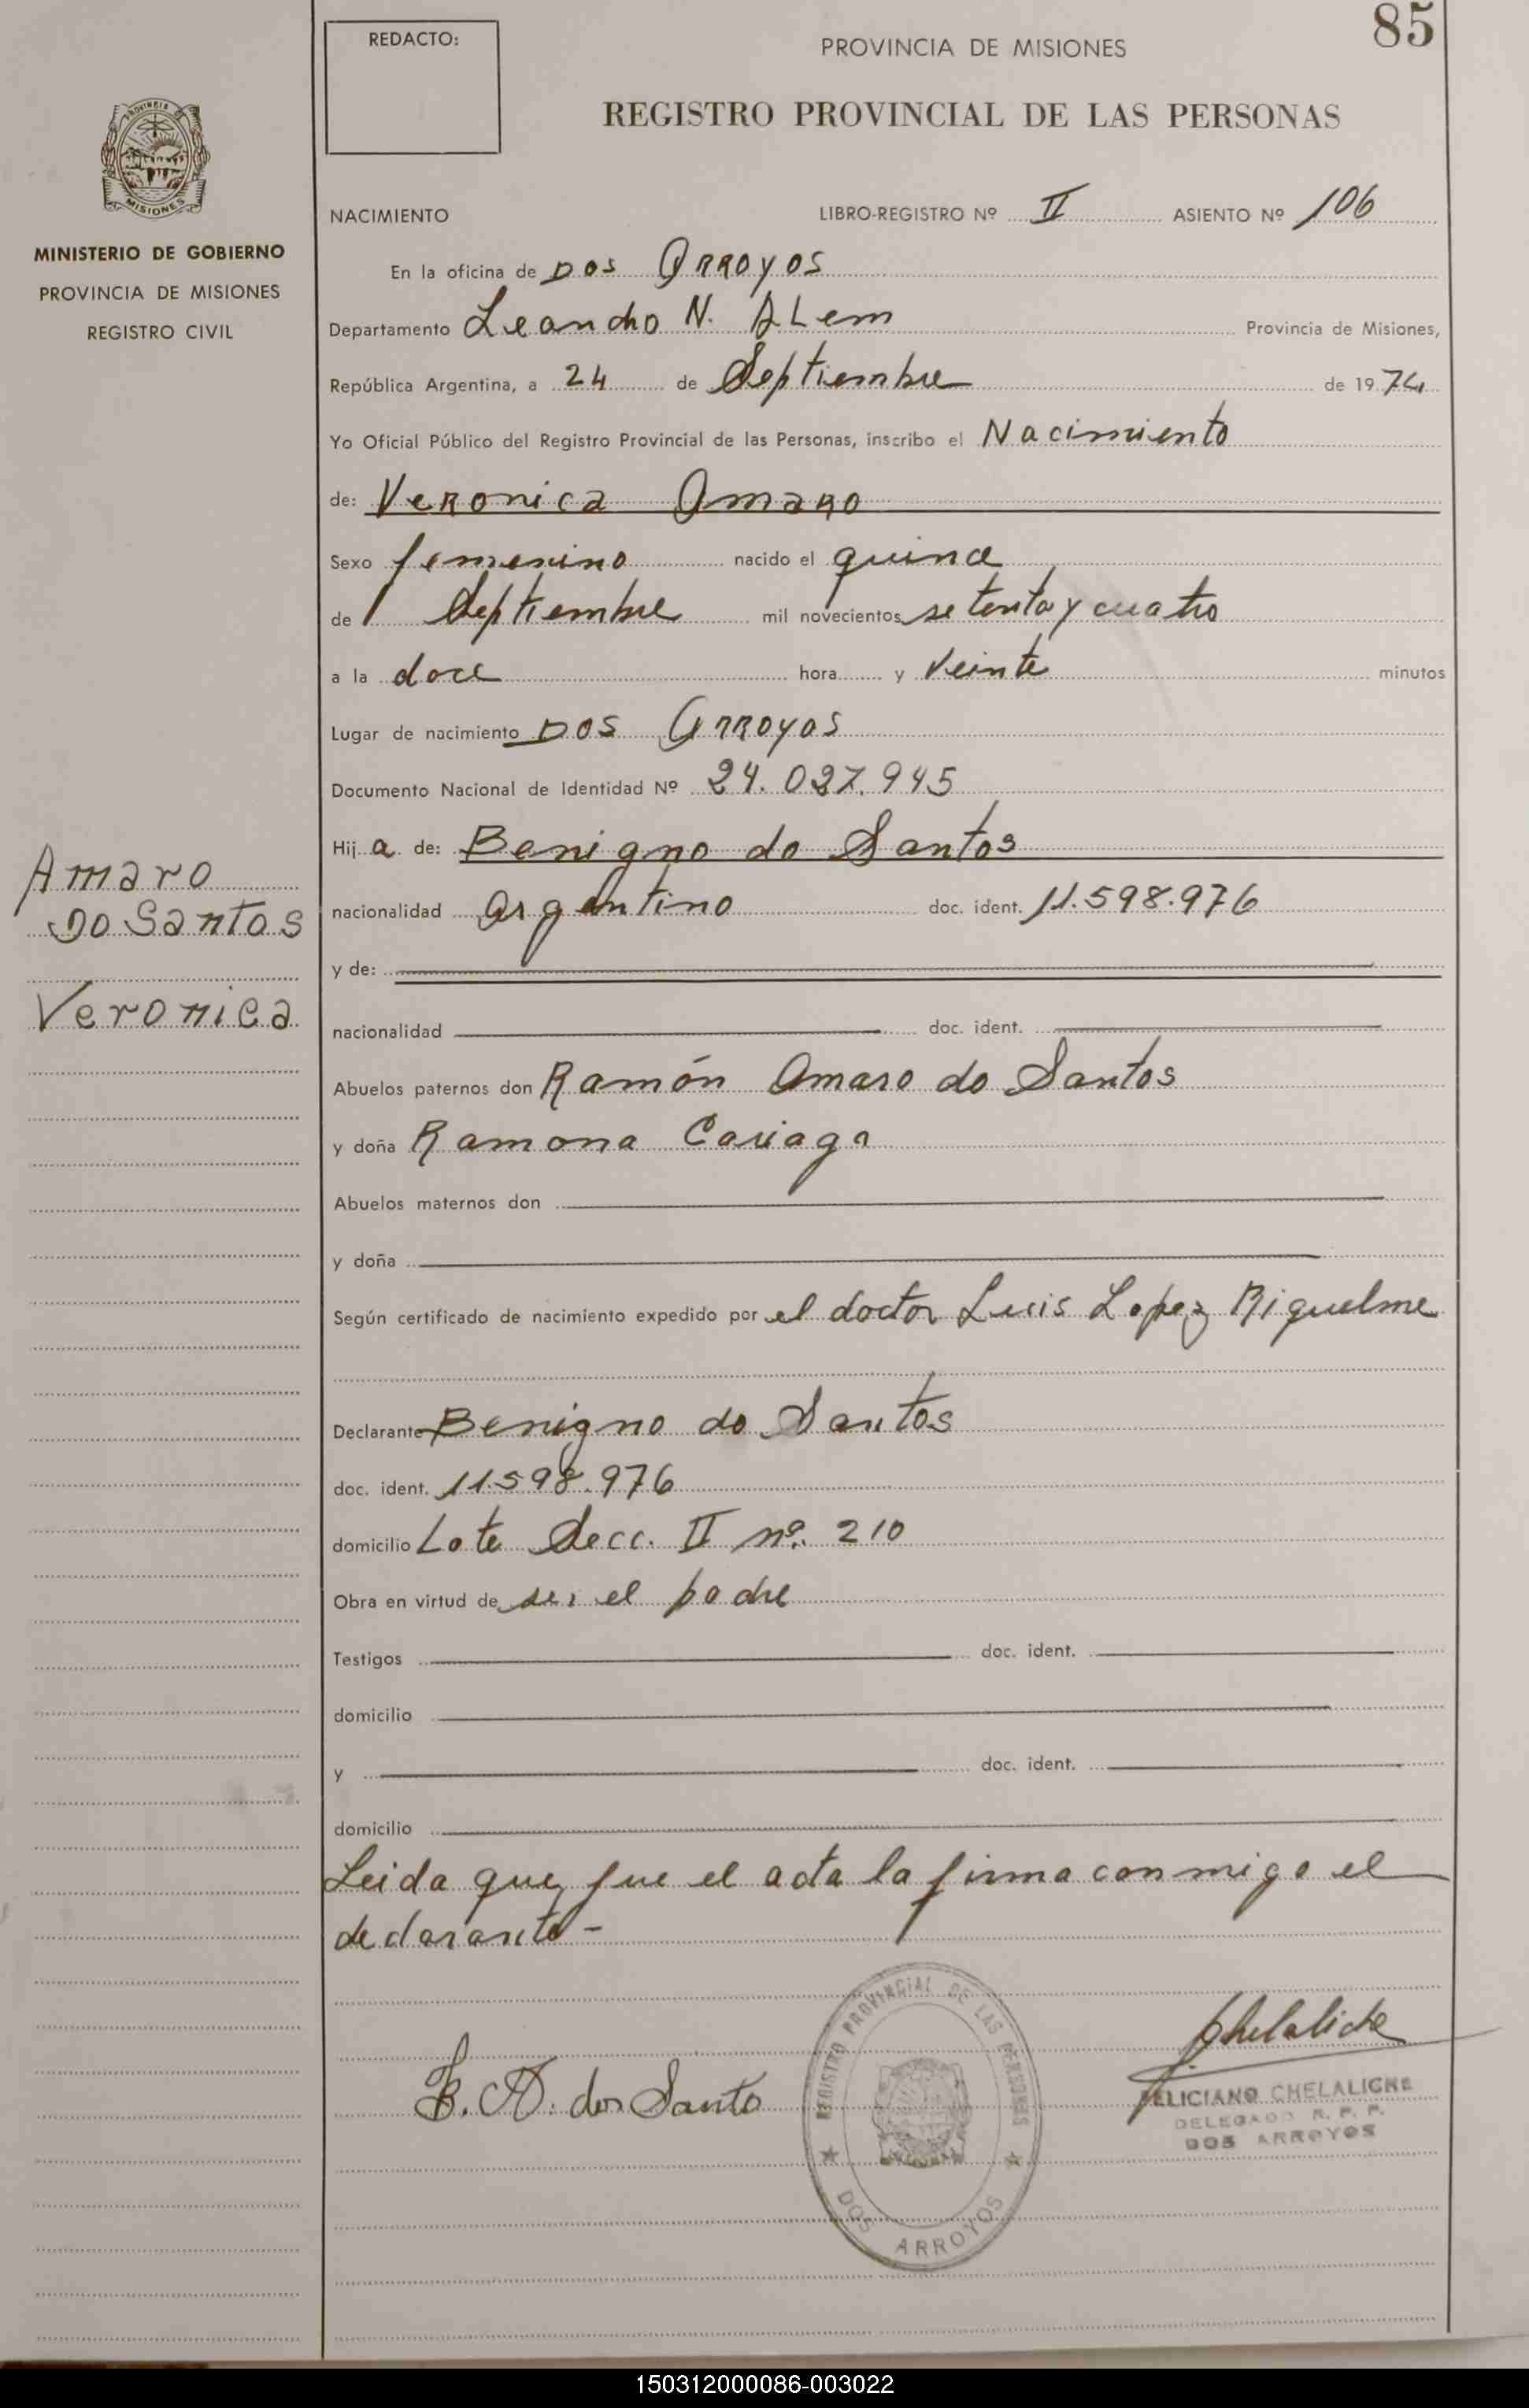 85
REDACTO:
PROVINCIA DE MISIONES
REGISTRO PROVINCIAL DE LAS PERSONAS
PROVINCIA DE
MISIONES
MINISTERIO DE GOBIERNO
PROVINCIA DE MISIONES
REGISTRO CIVIL
NACIMIENTO LIBRO-REGISTRO Nº II ASIENTO Nº 106
En la oficina de Dos Arroyos
Departamento Leandro N. ALem Provincia de Misiones,
República Argentina, a 24 de Septiembre de 1974
Yo Oficial Público del Registro Provincial de las Personas, inscribo el Nacimiento
de: Veronica Amaro
Sexo femenino nacido el quince
de Septiembre mil novecientos setenta y cuatro
a la doce hora y veinte minutos
Lugar de nacimiento Dos Arroyos
Documento Nacional de Identidad Nº 24.037.945
Hij a de: Benigno do Santos
nacionalidad argentino doc. ident. 11.598.976
y de:
nacionalidad doc. ident.
Abuelos paternos don Ramón Amaro do Santos
y doña Ramona Cariaga
Abuelos maternos don
y doña
Según certificado de nacimiento expedido por el doctor Luis Lopez Riquelme
Declarante Benigno do Santos
doc. ident. 11.598.976
domicilio Lote Secc. II nº. 210
Obra en virtud de ser el padre
Testigos doc. ident.
domicilio
y doc. ident.
domicilio
Leida que fue el acta la firma conmigo el
declarante-
Amaro
Do Santos
Veronica
B. A. dos Santo
REGISTRO PROVINCIAL DE LAS PERSONAS
DOS ARROYOS
Chelaliche
FELICIANO CHELALICHE
DELEGADO R. P. P.
DOS ARROYOS
150312000086-003022